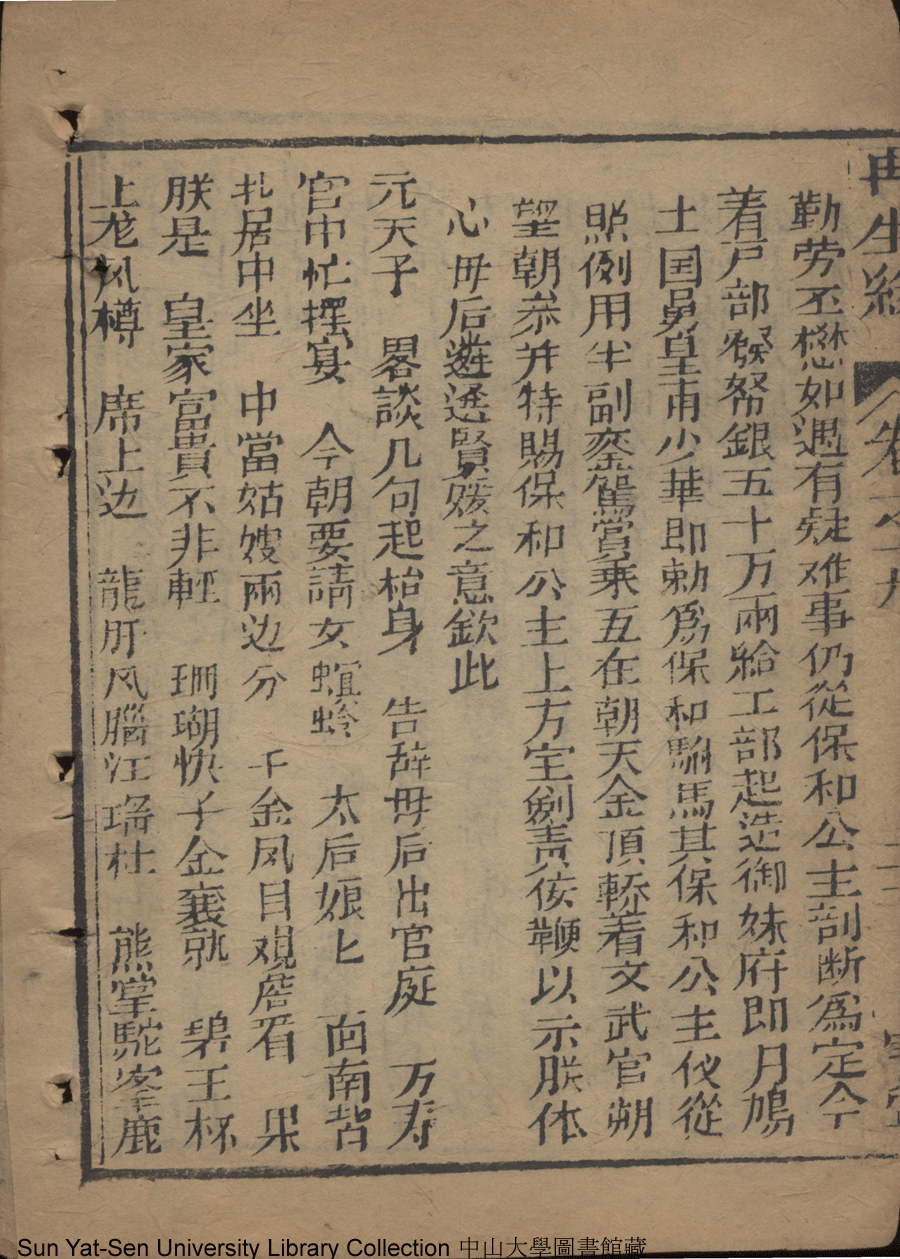 再生緣 卷之十九
勤劳丕懋如遇有疑难事仍從保和公主剖断為定今
着户部發帑銀五十万兩給工部起造御妹府即月鳩
土国舅皇甫少華即勅為保和駙馬其保和公主仪從
照例用半副鑾駕嘗乘五在朝天金頂轎着文武官朔
望朝叅并特賜保和公主上方宝劍責侫鞭以示朕体
心母后遴選賢媛之意欽此
元天子 畧談几句起枱身 告辞母后出官庭 万寿
官中忙擺宴 今朝要請女螟蛉 太后娘匕 面南背
北居中坐 中當姑嫂兩边分 千金凤目观詹看 果
朕是 皇家富貴不非輕 珊瑚快子金襄就 碧王杯
上龙凤樽 席上边 龍肝凤腦江瑤杜 熊掌駝峯鹿
Sun Yat-Sen University Library Collection 中山大學圖書館藏